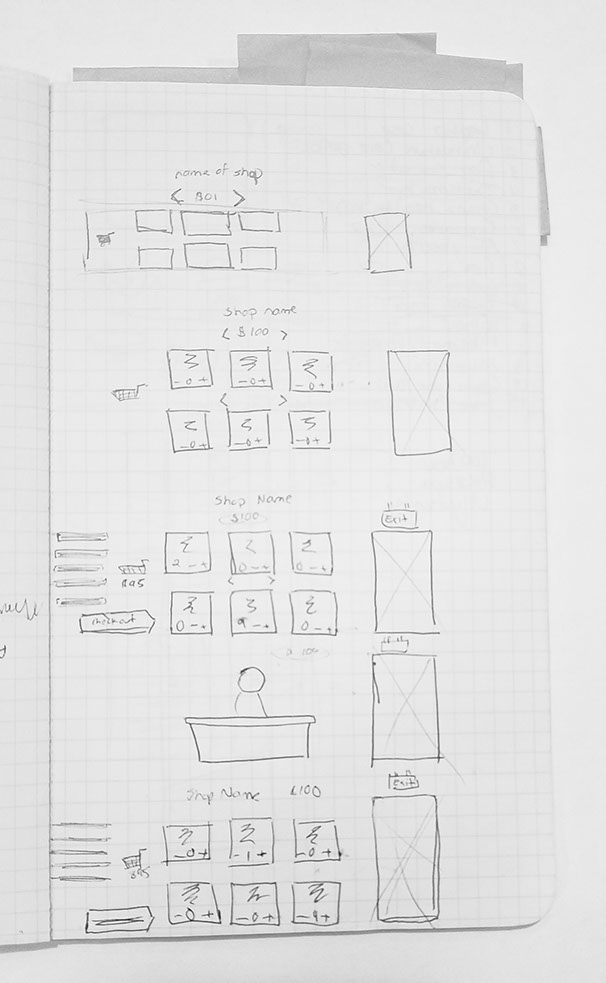 name of shop
< B01 >
Shop name
< $100 >
- 0 + - 0 + - 0 +
< >
- 0 + - 0 + - 0 +
Shop Name
$100
Exit
2 - + 0 - + 0 - +
Bag
< >
checkout
0 - + 9 - + 0 - +
Shop Name £100
Exit
- 0 + - 1 + - 0 +
Bag
- 0 + - 0 + - 9 +